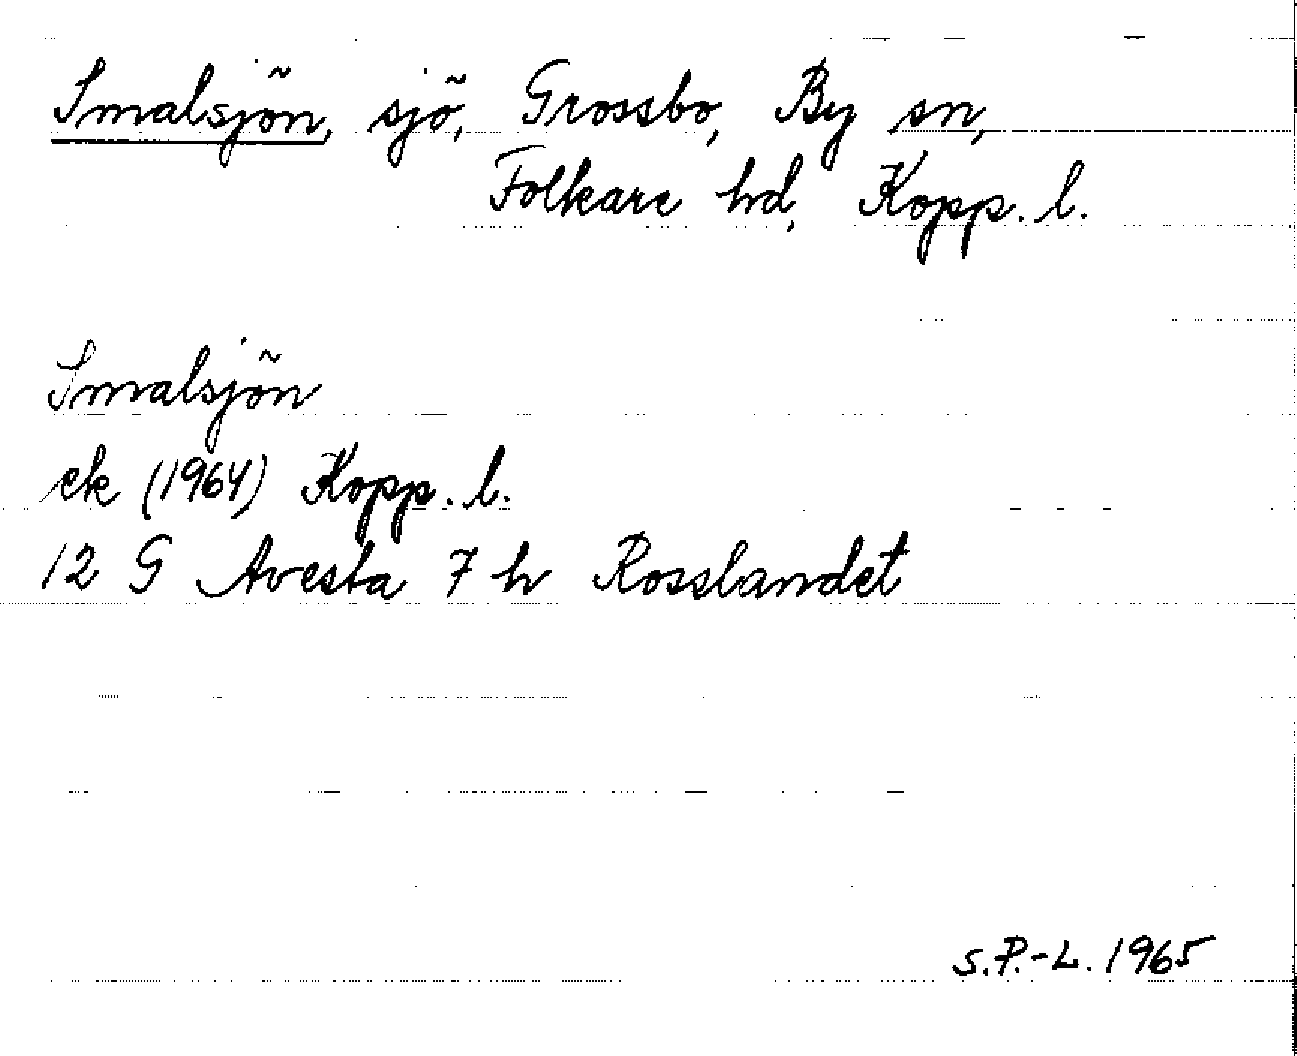 Smalsjön, sjö, Grossbo, By sn,
Folkare hd, Kopp. l.
Smalsjön
ek (1964) Kopp. l.
12 G Avesta 7 h Rosslandet
S.P.-L. 1965